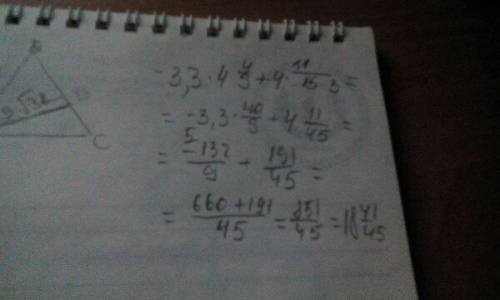 B
9√32
D
C
-3,3 · 4 4/9 + 4 · 11/15 3 =
= -3,3 · 40/9 + 4 11/45 =
= 5 -132/9 + 191/45 =
= 660+191/45 = 851/45 = 18 41/45